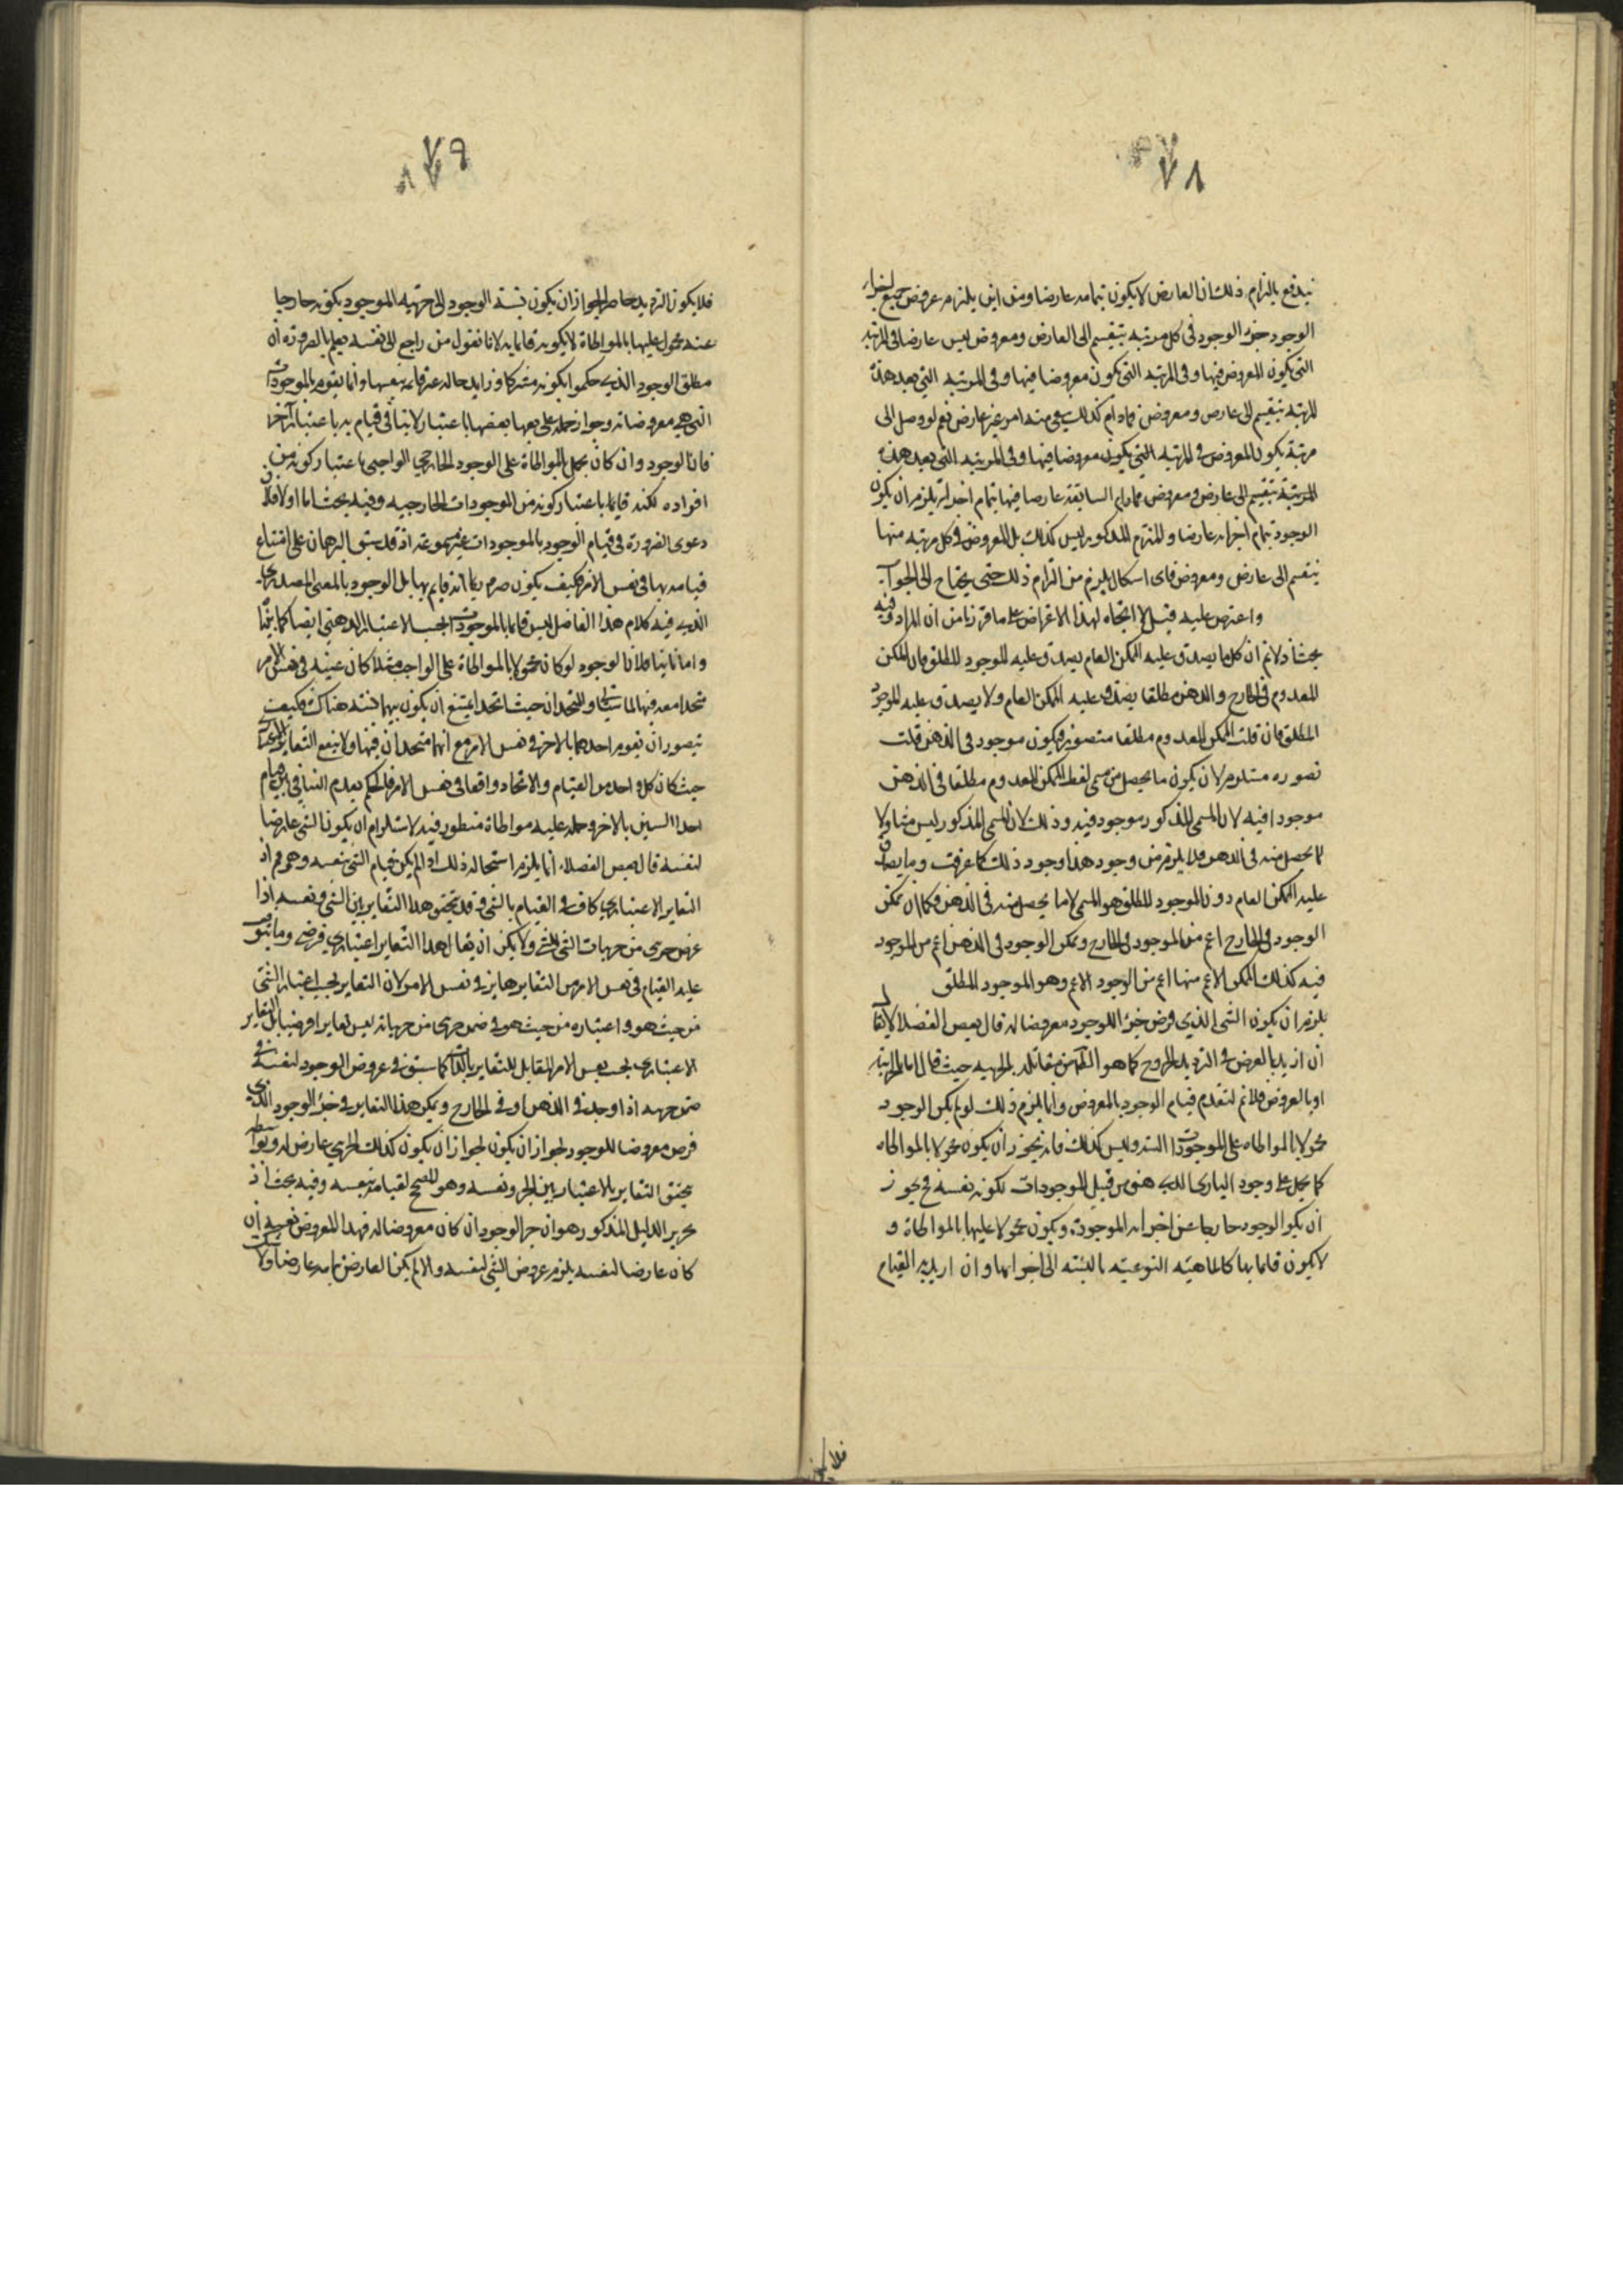 ٧٨
يندفع بالتزام ذلك ان العارض لا يكون بتمامه عارضا ومن اين يلتزم عروض جميع اجزاء
الوجود جزء الوجود في كل مرتبة ينقسم الى العارض ومعروض ليس عارضا في المرتبة
التي يكون المعروض فيها وفي المرتبة التي يكون معروضا فيها وفي المرتبة التي بعد هذه
المرتبة ينقسم الى عارض ومعروض فمادام كذلك يبقى منه امر غير عارض نعم لو وصل الى
مرتبة يكون المعروض في المرتبة التي يكون معروضا فيها وفي المرتبة التي بعد هذه
المرتبة ينقسم الى عارض ومعروض السابقة عارضا فيها بتمام اجزائه يلزم ان يكون
الوجود بتمام اجزائه عارضا والملتزم المذكور ليس كذلك بل المعروض في كل مرتبة منها
ينقسم الى عارض ومعروض فاى اشكال يلزم من التزام ذلك حتى يحتاج الى الجواب
واعترض عليه قيل لا اتجاه لهذا الاعتراض على ما قررنا من ان المراد وفيه
بحث اذ لا نم ان كل ما يصدق عليه الممكن العام يصدق عليه الموجود المطلق فان الممكن
المعدوم في الخارج والذهن مطلقا يصدق عليه الممكن العام ولا يصدق عليه الموجود
المطلق فان قلت الممكن المعدوم مطلقا متصور فيكون موجود في الذهن قلت
تصوره مستلزم لان يكون ما يحصل من مسمى لفظ الممكن المعدوم مطلقا في الذهن
موجودا فيه لا ان المسمى المذكور موجود فيه وذلك لان المسمى المذكور ليس مساويا
لما يحصل منه في الذهن فلا يلزم من وجود هذا وجود ذلك كما عرفت وما يصدق
عليه الممكن العام دون الموجود المطلق هو المسمى لا ما يحصل منه في الذهن فكما ان ممكن
الوجود في الخارج اعم من الموجود في الخارج وممكن الوجود في الذهن اعم من الموجود
فيه كذلك الممكن الاعم منها اعم من الوجود الاعم وهو الموجود المطلق
يلزم ان يكون الشئ الذي فرض جزءا للوجود معروضا له قال بعض الفضلا لا يقال
ان اريد بالعرض في الترديد الخروج كما هو من مقابله بالجزئية حيث قال اما بالجزئية
او بالعروض فلا نم لتقدم قيام الوجود بالمعروض وانما يلزم ذلك لو لم يكن الوجود
محمولا بالمواطاه على الموجودات البتة وليس كذلك فانه يجوز ان يكون محمولا بالمواطاه
كما يحمل على وجود البارى الذي هو من قبيل الموجودات لكونه نفسه فح يجوز
ان يكون الوجود خارجا عن اجزائه الموجودة ويكون محمولا عليها بالمواطاة و
لا يكون قائما بها كالماهية النوعية بالنسبة الى اجزائها وان اريد به القيام
فلا يكون
٧٩
فلا يكون الترديد حاصرا لجواز ان يكون نسبة الوجود الى جزئيه الموجود بكونه خارجا
عنه محمول عليها بالمواطاة لا بكونه قائما به لانا نقول من راجع الى نفسه يعلم بالضرورة ان
مطلق الوجود الذي حكموا بكونه مشتركا وزايدا حاله غير قائمة بنفسها وانما يقوم بالموجودات
التي هي معروضاته وجواز حمله على بعضها باعتبار لا ينافى قيام به باعتبار آخر
فان الوجود وان كان يحمل بالمواطاة على الوجود الخارجي الواجبي باعتبار كونه من
افراده لكنه قائما باعتبار كونه من الموجودات الخارجيه وفيه بحث اما اولا فلان
دعوى الضرورة في قيام الوجود بالموجودات غير مسموعة اذ قد سبق البرهان على امتناع
قيامه بها في نفس الامر فكيف يكون ضروريا انه قايم بها بل الوجود بالمعنى المصدري
الذي فيه كلام هذا الفاضل ليس قائما بالموجودات بحسب الاعتبار الذهني ايضا كما بينا
واما ثانيا فلان الوجود لو كان محمولا بالمواطاة على الواجب مثلا كان عينه في نفس الامر
متحدا معه فيها لما سياتي والمتحدان حيث اتحدا يمتنع ان يكون بينهما نسبة هناك فكيف
يتصور ان يقوم احدهما بالاخر في نفس الامر مع انهما متحدان فيها ولا ينفع التغاير الاعتباري
حيث كان كل واحد من القيام والاتحاد واقعا في نفس الامر فالحكم بعدم التنافى بين قيام
احد الشيئين بالاخر وحمله عليه مواطاة منظور فيه لاستلزام ان يكون الشئ عارضا
لنفسه قال بعض الفضلاء انما يلزم استحالة ذلك اذا لم يكن قيام الشئ بنفسه وهو مم اذ
التغاير الاعتباري كاف في القيام بالشئ وقد تحقق هذا التغاير بين الشئ ونفسه اذا
عرض جزئي من جزئيات الشئ للشئ ولا يمكن ان يقال هذا التغاير اعتباري فرضي وما يتوقف
عليه القيام في نفس الامر هو التغاير هاهنا في نفس الامر لان التغاير بحسب اعتبار الشئ
من حيث هو واعتباره من حيث هو في ضمن جزئي من جزئياته ليس تغايرا فرضيا بل التغاير
الاعتباري بحسب نفس الامر المقابل للتغاير بالذات كما سبق في عروض الوجود لنفسه في
ضمن جزئيه اذا وجد في الذهن او في الخارج ويمكن هذا التغاير في جزء الوجود الذي
فرض معروضا للوجود لجواز ان يكون لجواز ان يكون كذلك الجزئي عارض له وبواسطته
يتحقق التغاير بالاعتبار بين الجزء ونفسه وهو المصحح لقيامه بنفسه وفيه بحث اذ
تحرير الدليل المذكور هو ان جزء الوجود ان كان معروضا له فهذا المعروض بعينه ان
كان عارضا لنفسه يلزم عروض الشئ لنفسه والا لم يكن العارض بتمامه عارضا ولا